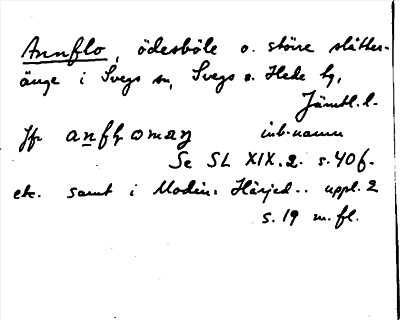 Annflo, ödesböle o. större slåtter-
änge i Svegs sn, Svegs o. Hede tg,
Jämtl. l.
Jfr inb.namn
Se SL XIX.2. s. 40 f.
etc. samt i Modin: Härjed.. uppl. 2
s. 19 m. fl.